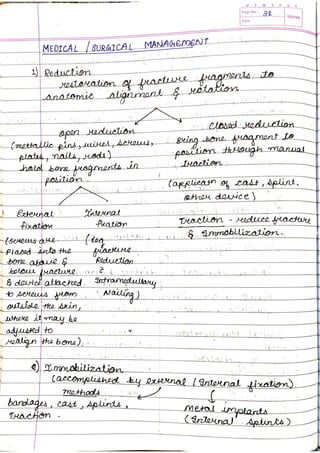 M T W T F S S
Page No.: 32
Date:
YOUVA
MEDICAL / SURGICAL MANAGEMENT
1) Reduction
restoration of fracture fragments to
anatomic alignment & rotation
open reduction
(metallic pins, wires, screws,
plates, nails, rods)
hold bone fragments in
position
Closed reduction
Bring bone fragment to
position through manual
traction
(applicatn of cast, splint,
other device)
Traction - reduce fracture
& Immobilization.
External
fixation
(screws are
placed into the
bone above &
below fracture
& device attached
to screws from
outside the skin,
where it may be
adjusted to
realign the bone).
Internal
fixation
(leg
fracture
Reduction
?
Intramedullary
Nailing)
2) Immobilization
(accomplished by external / Internal fixation).
methods
bandages, cast, splints,
Traction.
metal implants
(Internal splints)